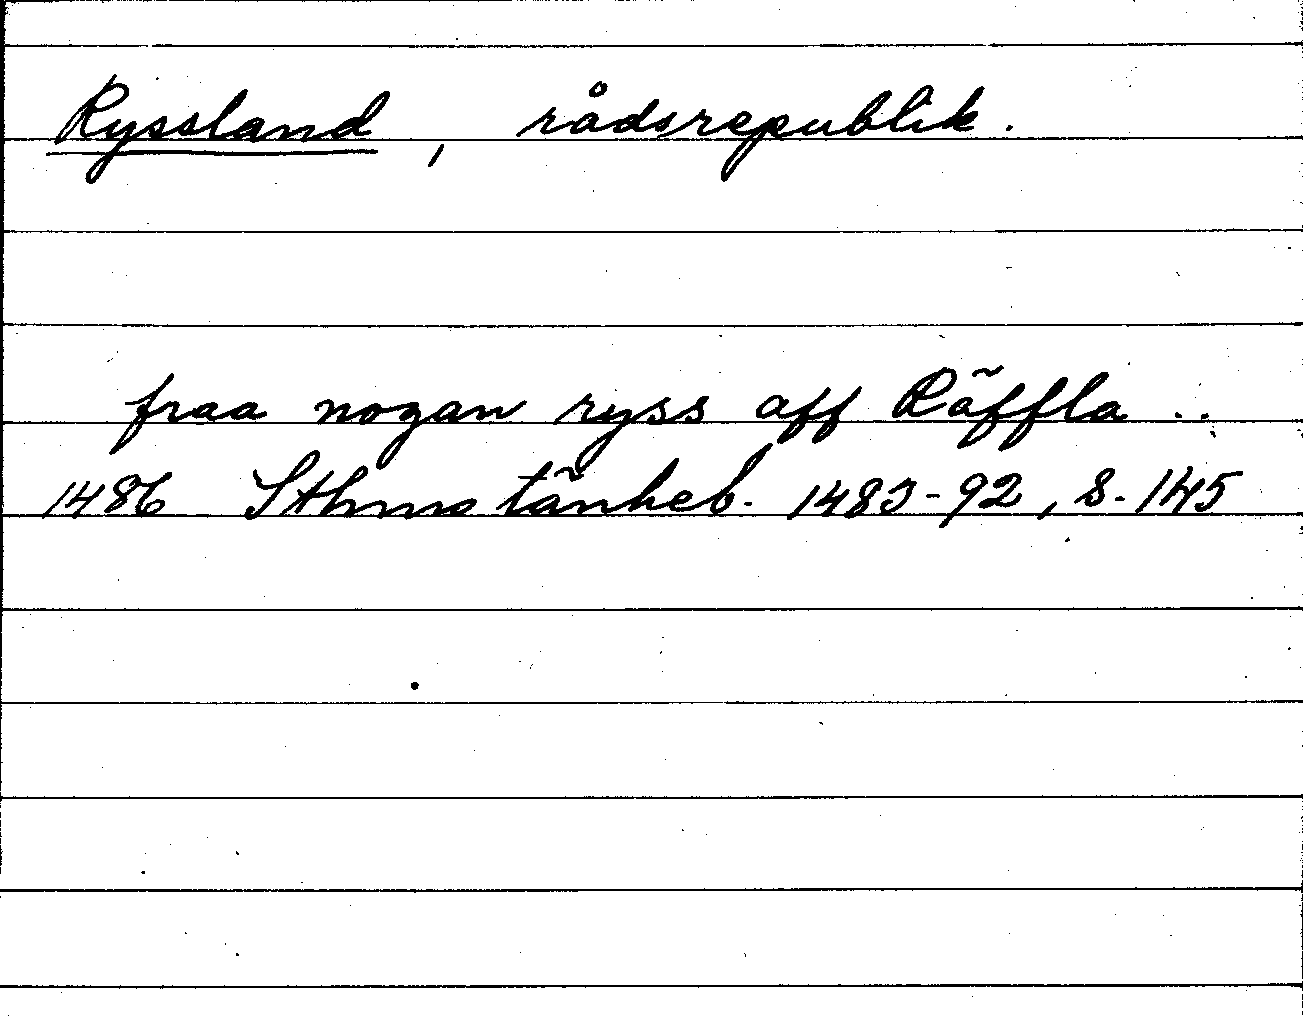 Ryssland, rådsrepublik.
fraa nogan ryss aff Räffla ..
1486 Sthms tänkeb. 1483-92, s. 145